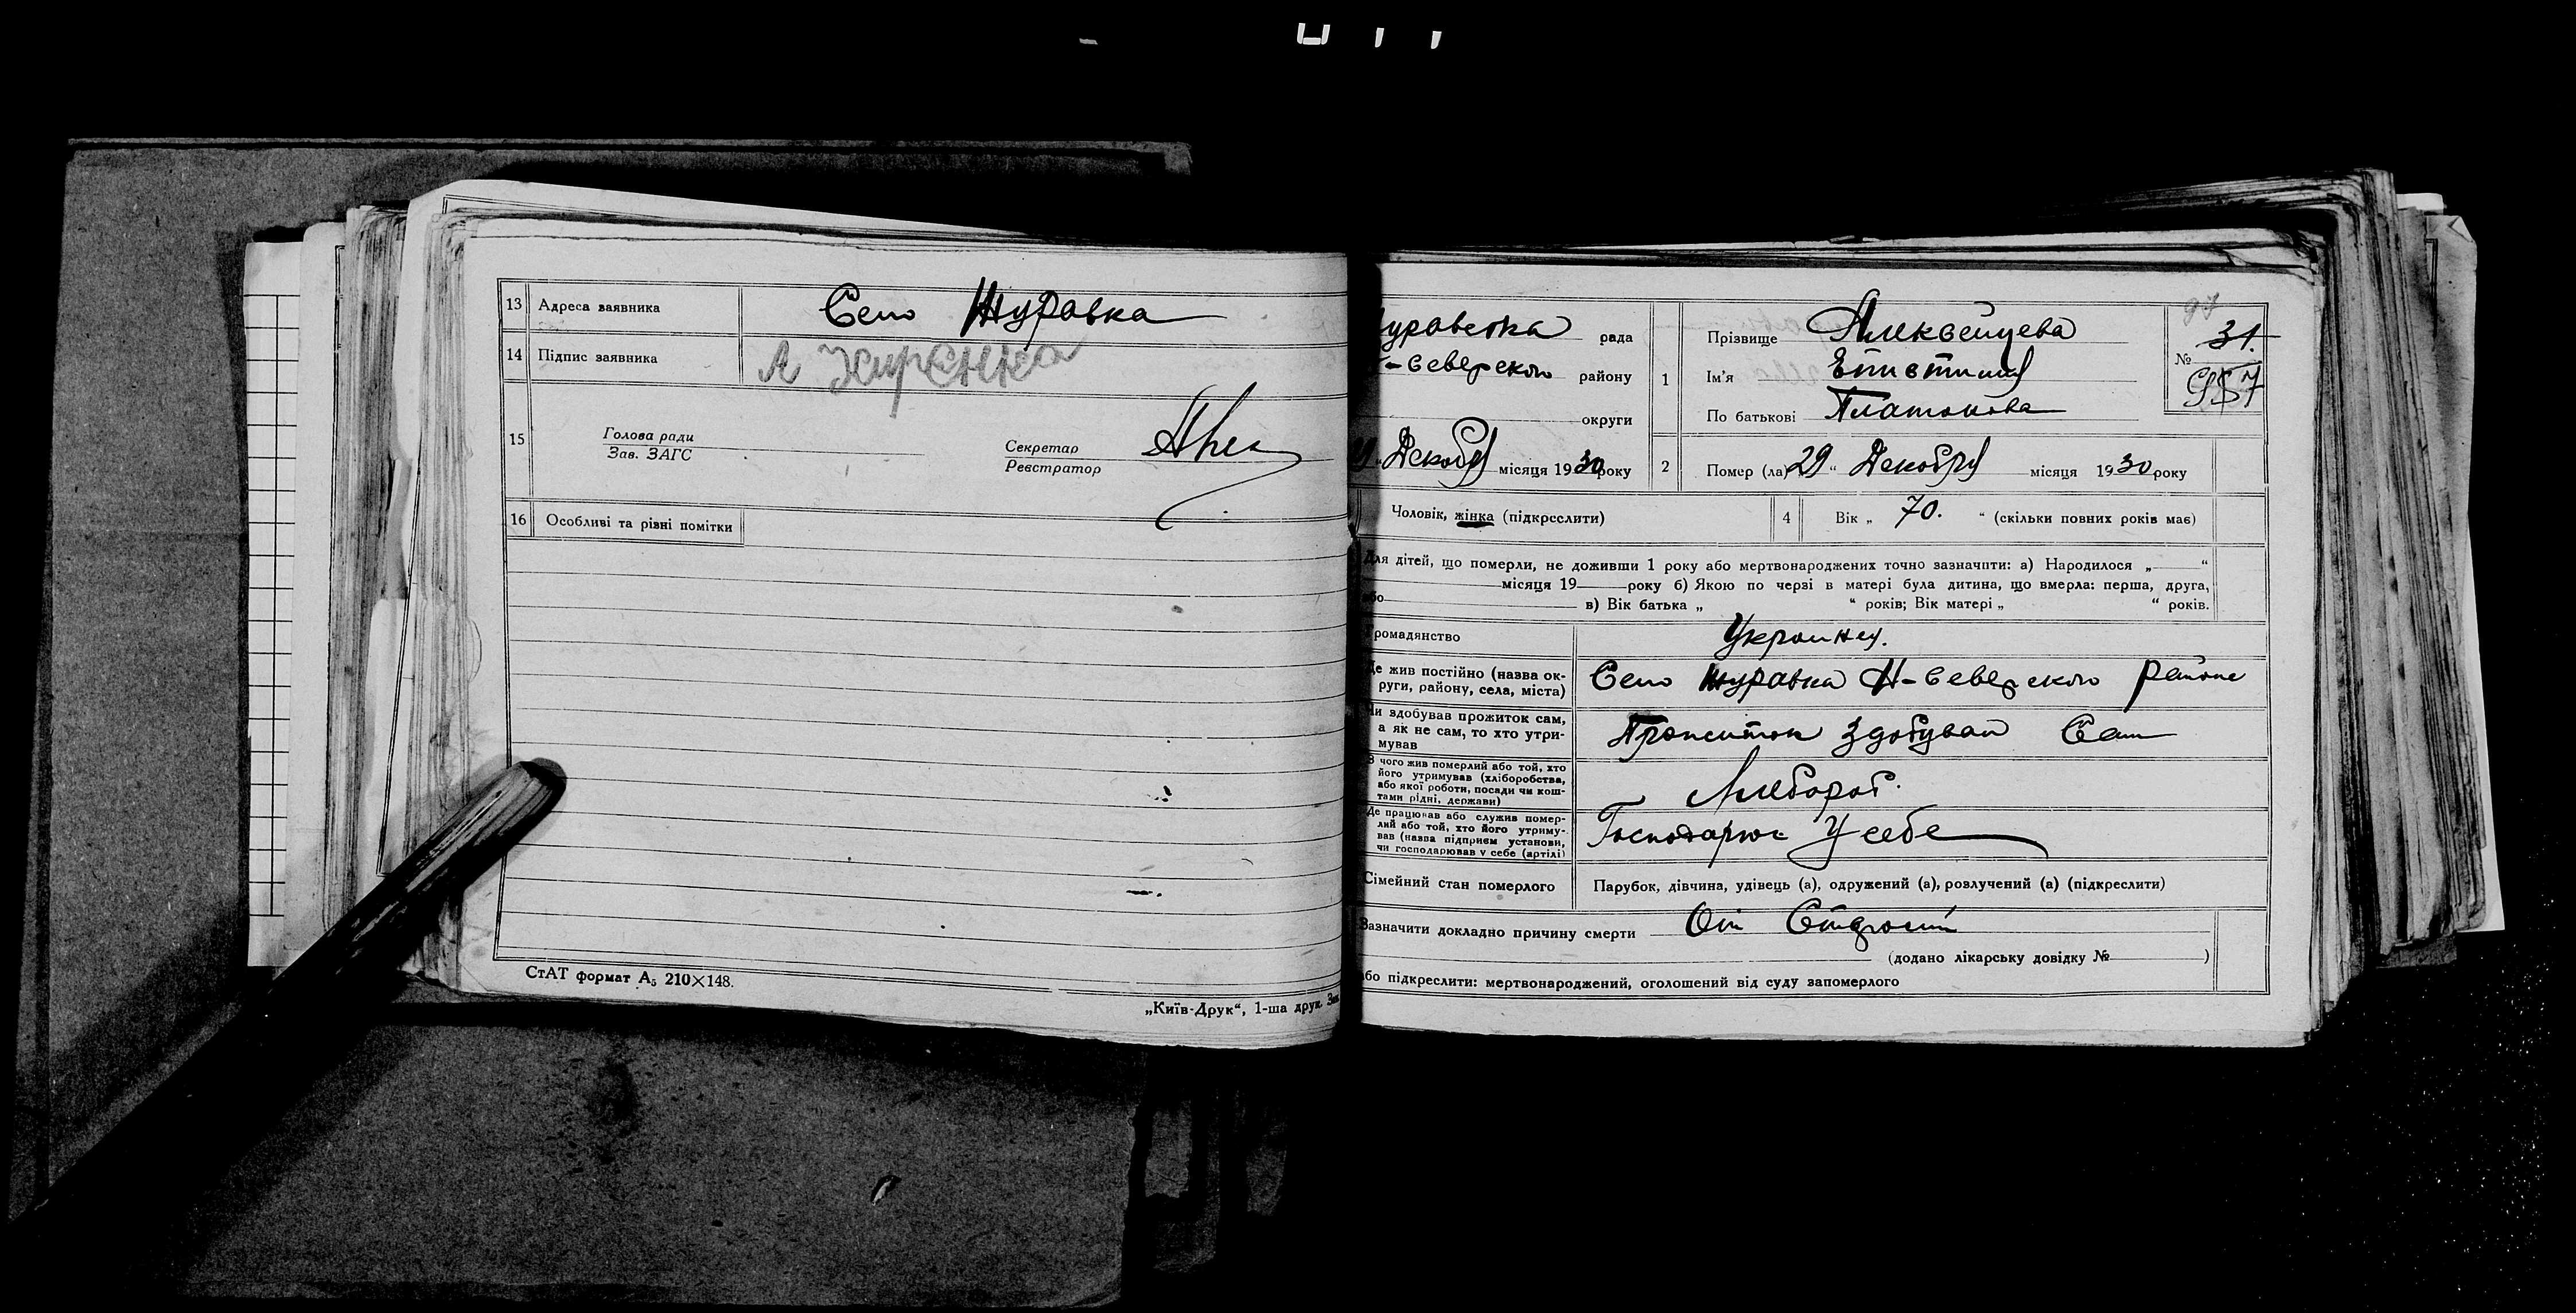 13 Адреса заявника Село Журавка
14 Підпис заявника
15 Голова ради
Зав. ЗАГС
Секретар
Реєстратор
16 Особливі та різні помітки
СтАТ формат А5 210×148.
„Київ-Друк“, 1-ша друк.
рада
-Северского району
округи
Декабря місяця 1930 року
1 Прізвище Алексейцева
Ім'я Епистимия
По батькові Платонова
№ 31.
957
2 Помер (ла) 29 “ Декабря місяця 1930 року
Чоловік, жінка (підкреслити)
4 Вік „ 70. “ (скільки повних років має)
Для дітей, що померли, не доживши 1 року або мертвонароджених точно зазначити: а) Народилося „ “
місяця 19 року б) Якою по черзі в матері була дитина, що вмерла: перша, друга,
або в) Вік батька „ “ років; Вік матері „ “ років.
Громадянство
Де жив постійно (назва ок-
руги, району, села, міста)
Село Журавка Н-Северского Района
Чи здобував прожиток сам,
а як не сам, то хто утри-
мував
Прожиток здобував Сам
З чого жив померлий або той, хто
його утримував (хліборобства,
або якої роботи, посади чи кош-
тами рідні, держави)
Хлебороб.
Де працював або служив помер-
лий або той, хто його утриму-
вав (назва підприєм установи,
чи господарював у себе (артілі)
У себе
Сімейний стан померлого
Парубок, дівчина, удівець (а), одружений (а), розлучений (а) (підкреслити)
Зазначити докладно причину смерти От Старости
(додано лікарську довідку № )
або підкреслити: мертвонароджений, оголошений від суду запомерлого